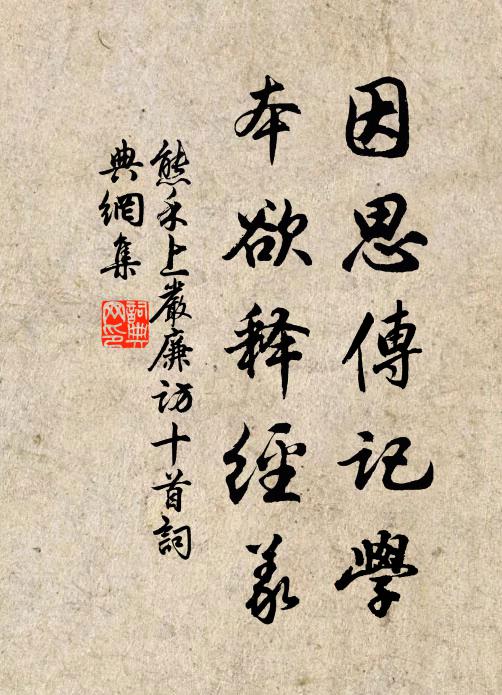 因思傳記學
本欲釋經義
熊禾上嚴廉訪十首詞
典網集
詞典網印